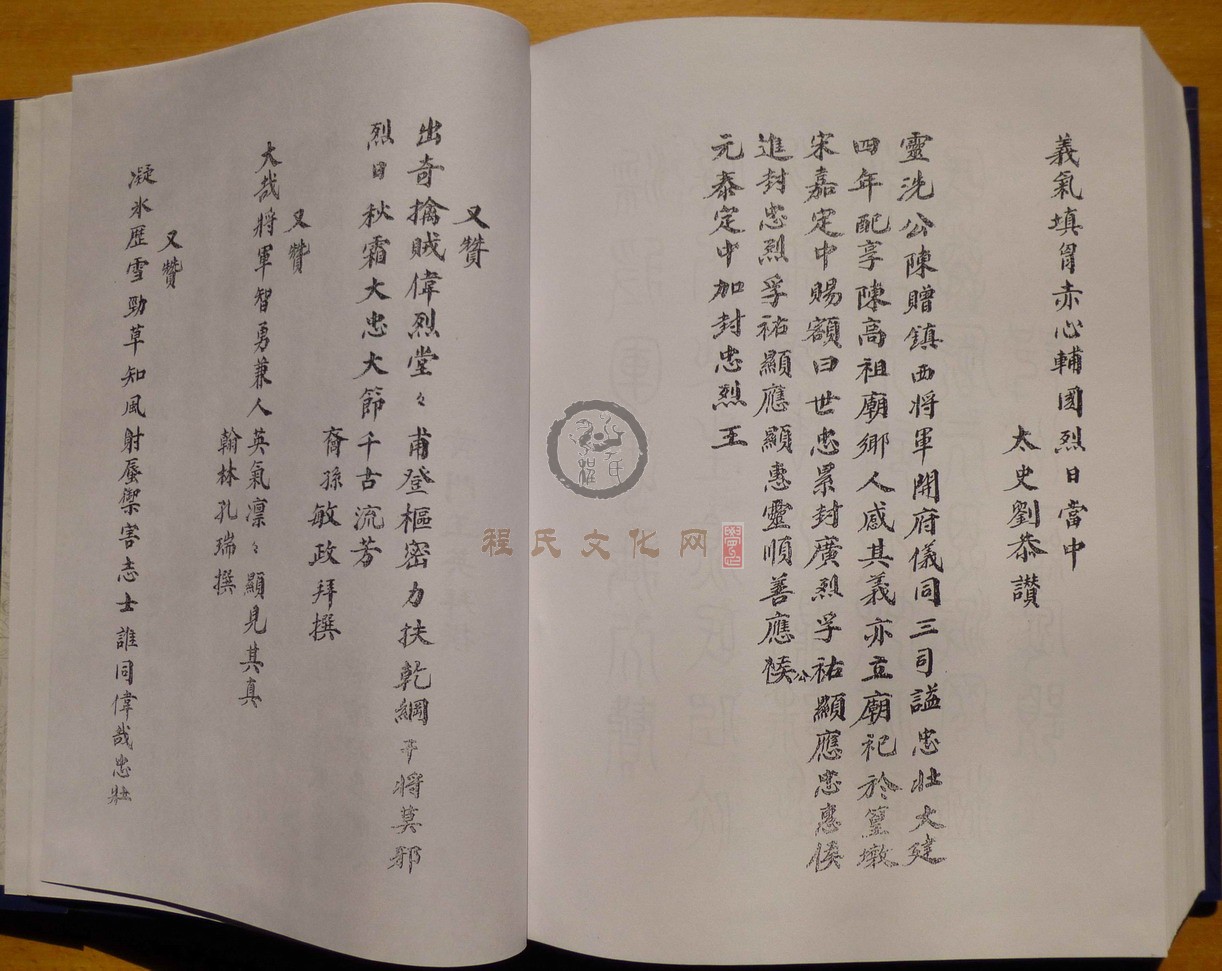 義氣填胷赤心輔國烈日當中
太史劉恭讃
靈洗公陳贈鎮西將軍開府儀同三司謚忠壯大建
四年配享陳高祖廟鄉人感其義亦立廟祀於篁墩
宋嘉定中賜額曰世忠累封廣烈孚祐顯應忠惠侯
進封忠烈孚祐顯應顯惠靈順善應侯公
元泰定中加封忠烈王
又贊
出奇擒賊偉烈堂々甫登樞密力扶乾綱干將莫邪
烈日秋霜大忠大節千古流芳
裔孫敏政拜撰
又贊
大哉將軍智勇兼人英氣凛々顯見其真
翰林孔瑞撰
又贊
凝氷歷雪勁草知風射蜃禦害志士誰同偉哉忠壯
程氏文化网